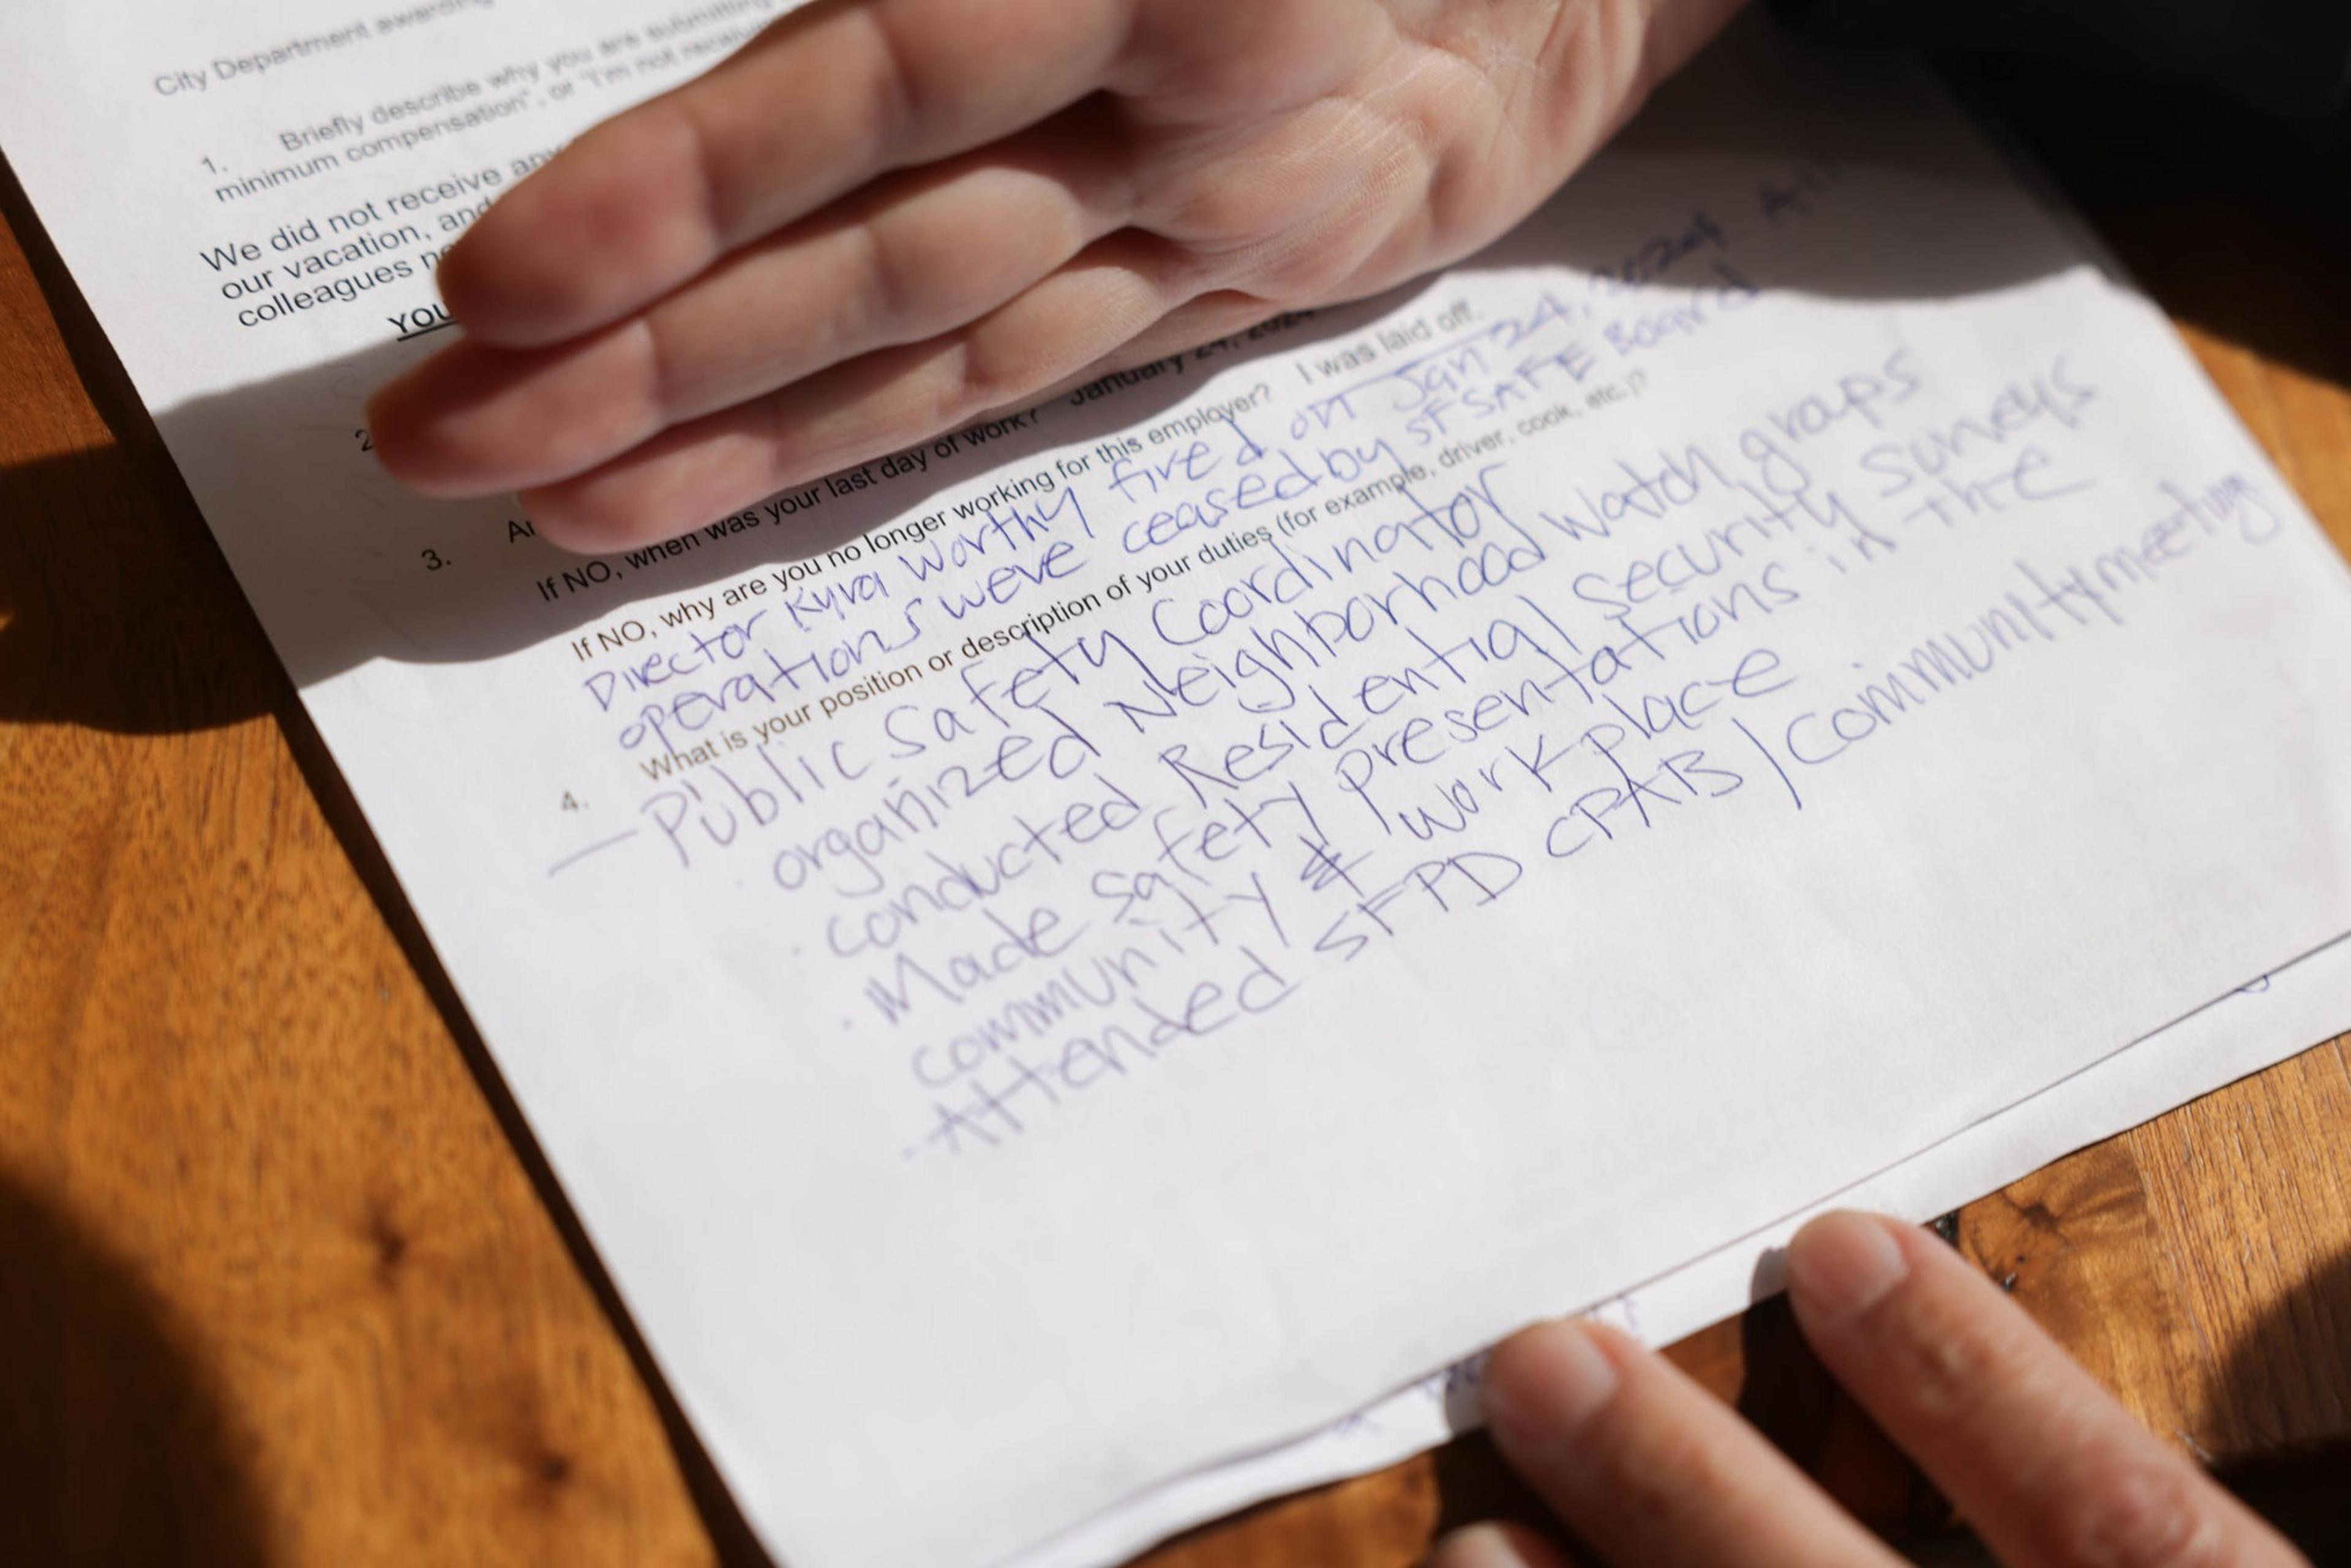 City Department awarding
1. Briefly describe why you are submitting
minimum compensation", or "I'm not receiving
We did not receive any
our vacation, and
colleagues
YOU
2
3.
If NO, when was your last day of work? January 24, 2024
If NO, why are you no longer working for this employer? I was laid off.
Director Kyra Worthy fired on Jan 24, 2024. All
operations weve ceased by SF SAFE Board
4. What is your position or description of your duties (for example, driver, cook, etc.)?
— Public Safety Coordinator
· organized Neighborhood watch graps
· conducted Residential Security Surveys
· Made Safety presentations in the
community & work place
· Attended SFPD CPAB / Community meeting